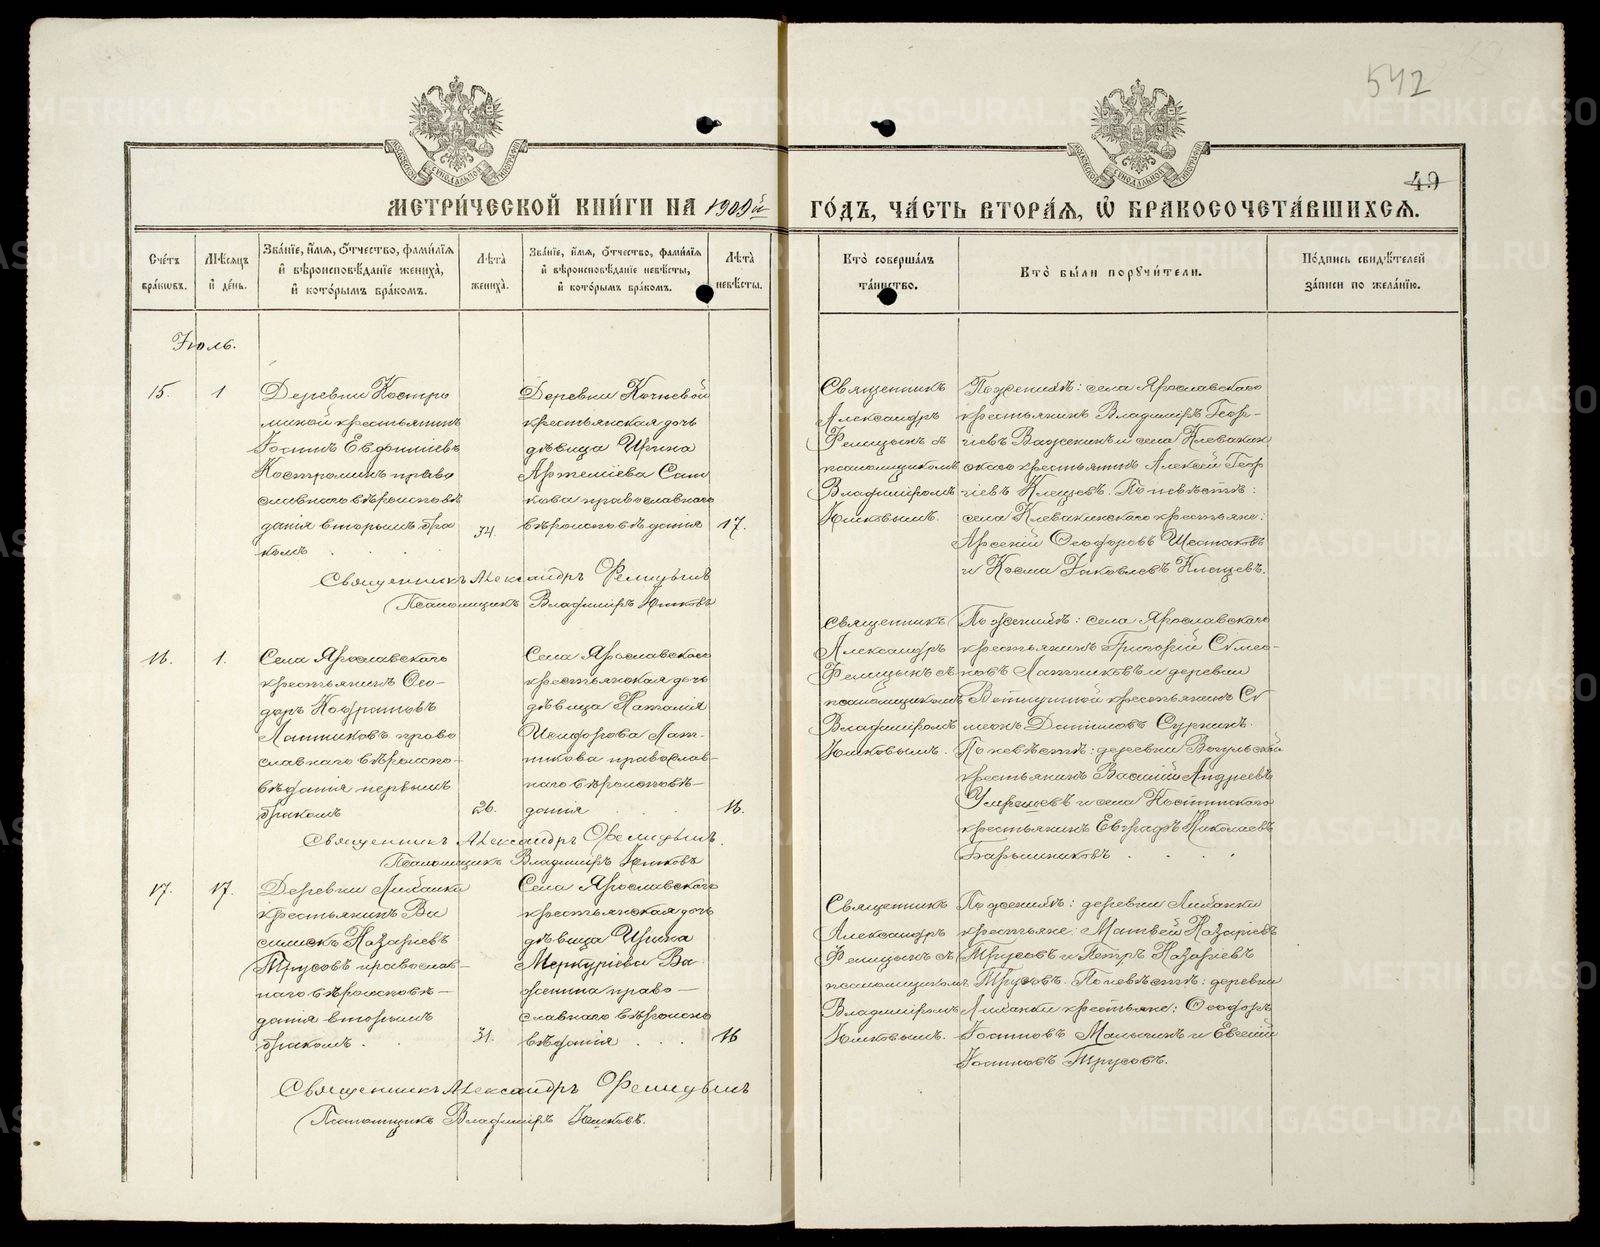 542
49
МЕТРИ́ЧЕСКОЙ КНИ́ГИ НА 1909й
ГО́ДЪ, ЧА́СТЬ ВТОРА́Я, Ѡ БРАКОСОЧЕТА́ВШИХСЯ.
Сче́тъ бра́кѡвъ.
Мѣ́сяцъ и҆ де́нь.
Зва́нїе, и҆́мя, о҆́тчество, фами́лїя
и҆ вѣроисповѣ́данїе жениха̀,
и҆ кото́рымъ бра́комъ.
Лѣ́та жениха̀.
Зва́нїе, и҆́мя, о҆́тчество, фами́лїя
и҆ вѣроисповѣ́данїе невѣ́сты,
и҆ кото́рымъ бра́комъ.
Лѣ́та невѣ́сты.
Кто̀ соверша́лъ та́инство.
Кто̀ бы́ли поручи́тели.
По́дпись свидѣ́телей за́писи по жела́нїю.
Іюль.
15.
1
Деревни Костро
миной крестьянинъ
Іоаннъ Евдокимовъ
Костроминъ право
славнаго вѣроисповѣ
данія вторымъ бра
комъ
34.
Деревни Кочневой
крестьянская дочь
дѣвица Ирина
Артеміева Сан
кова православнаго
вѣроисповѣданія
17.
Священникъ
Александръ
Фелицынъ съ
псаломщикомъ
Владиміромъ
Юшковымъ.
По женихѣ: села Ярославскаго
крестьянинъ Владиміръ Геор-
гіевъ Важенинъ и села Клевакин
скаго крестьянинъ Алексей Геор
гіевъ Клещевъ. По невѣстѣ:
села Клевакинскаго крестьяне:
Арсеній Ѳеодоровъ Шестаковъ
и Косма Іаковлевъ Клещевъ.
Священникъ Александръ Фелицынъ
Псаломщикъ Владиміръ Юшковъ
16.
1.
Села Ярославскаго
крестьянинъ Ѳео-
доръ Кодратовъ
Латниковъ право
славнаго вѣроиспо-
вѣданія первымъ
бракомъ
26.
Села Ярославскаго
крестьянская дочь
дѣвица Наталія
Исидорова Лат-
никова православ-
наго вѣроисповѣ-
данія
16.
Священникъ
Александръ
Фелицынъ съ
псаломщикомъ
Владиміромъ
Юшковымъ.
По женихѣ: села Ярославскаго
крестьянинъ Григорій Симео-
новъ Латниковъ и деревни
крестьянинъ Си
меонъ Даниловъ Суркинъ.
По невѣстѣ: деревни Вогульской
крестьянинъ Василій Андреевъ
и села
крестьянинъ Евграфъ Николаевъ
Барышниковъ
Священникъ Александръ Фелицынъ.
Псаломщикъ Владиміръ Юшковъ
17.
17.
Деревни Липанки
крестьянинъ Ва
силискъ Назаріевъ
Трусовъ православ-
наго вѣроисповѣ-
данія вторымъ
бракомъ.
31.
Села Ярославскаго
крестьянская дочь
дѣвица Ирина
Меркуріева Ва
женина право-
славнаго вѣроиспо
вѣданія
16
Священникъ
Александръ
Фелицынъ съ
псаломщикомъ
Владиміромъ
Юшковымъ.
По женихѣ: деревни Липанки
крестьяне: Матвей Назаріевъ
Трусовъ и Петръ Назаріевъ
Трусовъ. По невѣстѣ: деревни
Липанки крестьяне: Ѳеодоръ
Іоанновъ и Евсевій
Іоанновъ Трусовъ.
Священникъ Александръ Фелицынъ
Псаломщикъ Владиміръ Юшковъ.
METRIKI.GASO-URAL.RU